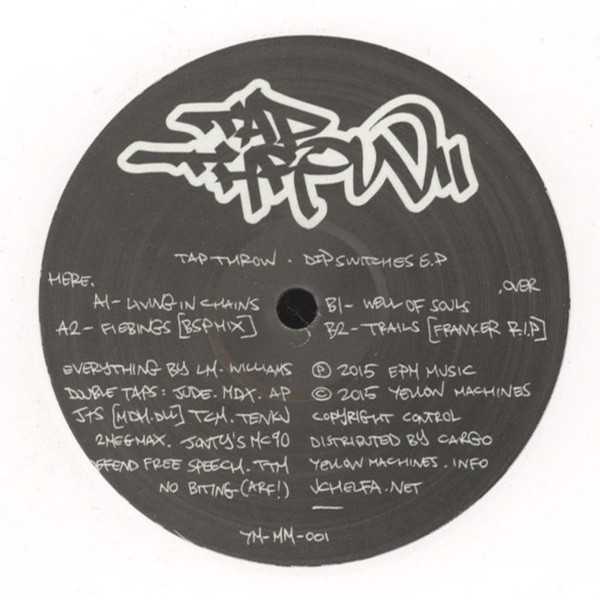 TAP
THROW
TAP THROW · DIPSWITCHES E.P
HERE.
A1- LIVING IN CHAINS
A2- FIEBINGS [BSPMIX]
.OVER
B1- WELL OF SOULS
B2- TRAILS [FRANKER R.I.P]
EVERYTHING BY LM. WILLIAMS
DOUBLE TAPS: JUDE. MDX. AP
JTS [MDM.DW] TCM. TENKU
2MEGMAX. JONTY'S MC90
DEFEND FREE SPEECH. TTM
NO BITING (ARF!)
Ⓟ 2015 EPM MUSIC
© 2015 YELLOW MACHINES
COPYRIGHT CONTROL
DISTRIBUTED BY CARGO
YELLOW MACHINES . INFO
VCHELFA .NET
YM-MM-001